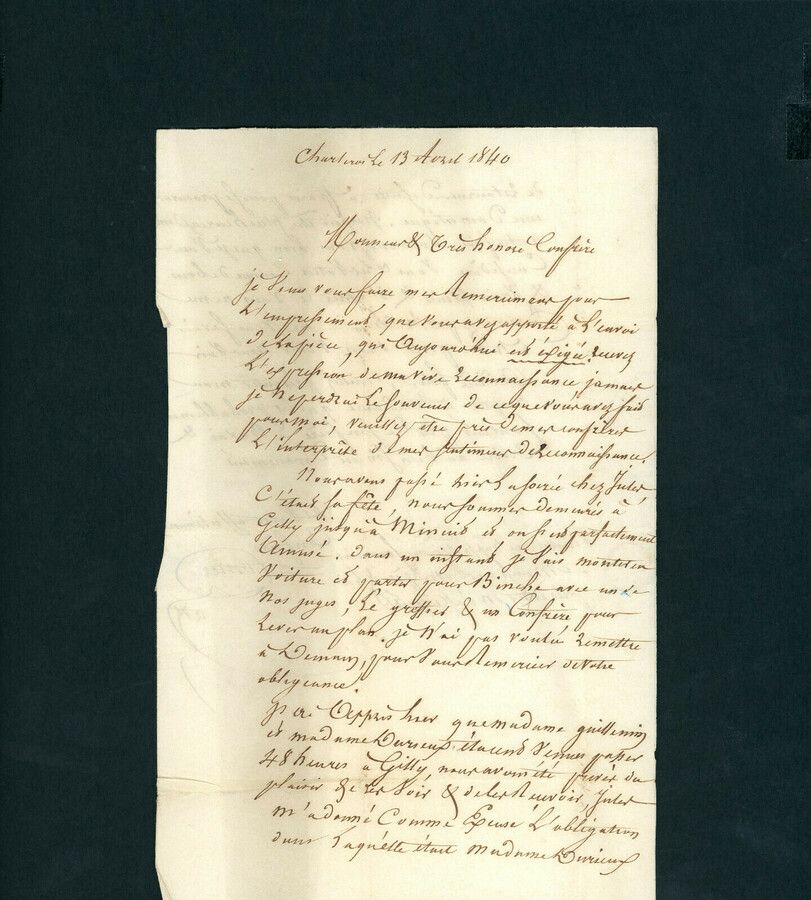 Charleroi Le 13 Avril 1840
Monsieur & Très honoré Confrère
je Viens vous faire mes Remerciemens pour
L'empressement que vous avez apporté à L'envoi
de La pièce, qui Aujourd'hui est éxigée. Recevez
L'expression de ma Vive Reconnaissance jamais
je ne perdrai Le Souvenir de ce que vous avez fait
pour moi, Veuillez être près de mes confrères
L'interprête de mes sentimens de Reconnaissance.
Nous avons passé hier La soirée chez Jules,
C'était sa fête, nous sommes demeurés à
Gilly jusqu'à Minuit et on s'est parfaitement
Amusé. dans un instant je Vais monter en
Voiture et partir pour Binche avec un de
Nos juges, Le greffier & un Confrère pour
Lever un plan. je N'ai pas voulu Remettre
à Demain, pour Vous Remercier de Votre
obligeance.
J'ai Appris hier que madame guillemin
et madame Durieux étaient Venues passer
48 heures à Gilly, nous avons été privés du
plaisir de Les Voir & de Les Recevoir, Jules
m'a donné Comme Excuse L'obligation
dans Laquelle était Madame Durieux